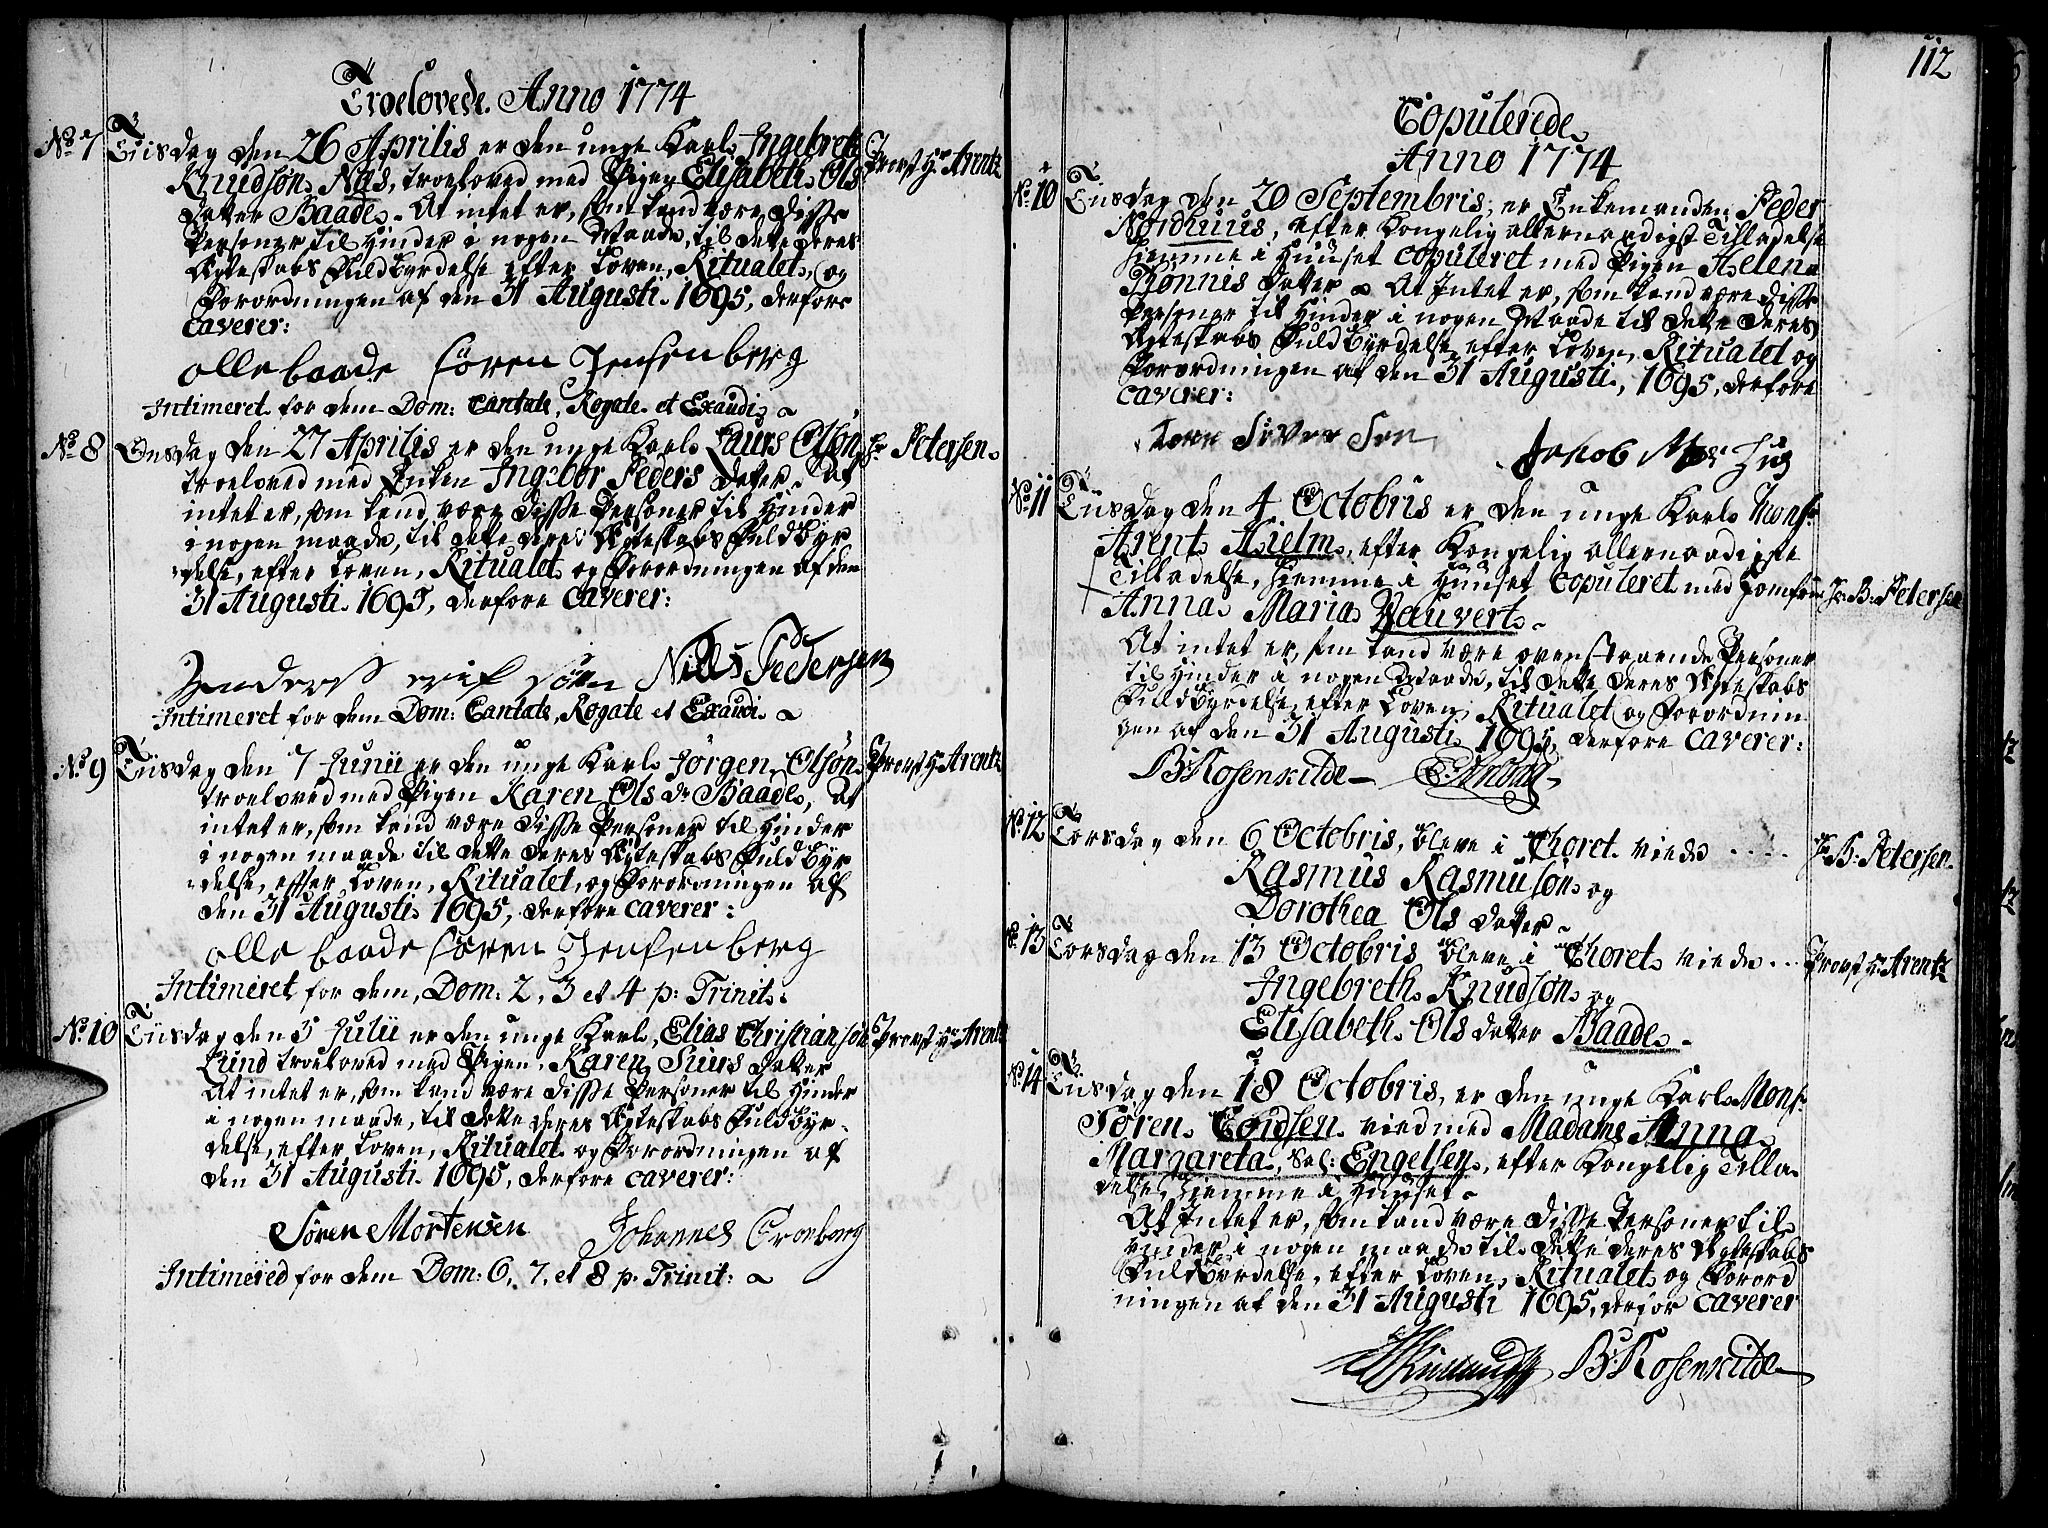 Troelovede Anno 1774
No 7 Tiisdag den 26 Aprilis er den unge Karl Ingebreth Provst Hr Arentz
Knudsøn Næs, troeloved med Pigen Elisabeth Ols
datter Baade. At intet er, som kand være disse
Personer til Hinder i nogen Maade, til dette deres
Ægteskabs Fuldbyrdelse efter Loven, Ritualet, og
Forordningen af den 31 Augusti 1695, derfore
caverer:
olle baade søren Jensen berg
Intimeret for dem Dom: Cantate, Rogate et Exaudi
No 8 Onsdag den 27 Aprilis er den unge Karl Laurs Olsøn Hr Petersen
troeloved med Enken Ingebor Peders datter. At
intet er, som kand være disse Personer til Hinder
i nogen maade, til dette deres Ægteskabs Fuldbyr
delse, efter Loven, Ritualet og Forordningen af den
31 Augusti 1695, derfore caverer:
Niels Pedersen
Intimeret for dem Dom: Cantate, Rogate et Exaudi
No 9 Tiisdag den 7 Junii er den unge Karl Jørgen Olsøn Provst Hr Arentz
troeloved med Pigen Karen Ols dr Baade, At
intet er, som kand være disse Personer til Hinder
i nogen maade til dette deres Ægteskabs Fuldbyr
delse, efter Loven, Ritualet, og Forordningen af
den 31 Augusti 1695, derfore caverer:
olle baade søren Jensen berg
Intimeret for dem, Dom: 2, 3 et 4 p: Trinit:
No 10 Tiisdag den 5 Julii er den unge Karl, Elias Christiansøn Provst Hr Arentz
Lund troeloved med Pigen, Karen Siurs datter
At intet er, som kand være disse Personer til Hinder
i nogen maade, til dette deres Ægteskabs Fuldbyr-
delse, efter Loven, Ritualet og Forordningen af
den 31 Augusti 1695, derfore caverer:
Søren Mortensen Johannes Cronborg
Intimered for dem Dom: 6, 7, et 8 p. Trinit:
112
Copulerede
Anno 1774
No 10 Tiisdag den 20 Septembris, er Enkemanden Peder
Nordhuus, efter Kongelig allernaadigst Tilladelse
hiemme i Huuset copuleret med Pigen Helena
Rønnis datter. At Intet er, som kand være disse
Personer til Hinder i nogen Maade til dette deres
Ægteskabs Fuldbyrdelse efter Loven, Ritualet og
Forordningen af den 31 Augusti, 1695, derfore
caverer:
Siver Sen Jakob
No 11 Tiisdag den 4 Octobris er den unge Karl Monsr
Arent Hielm, efter Kongelig allernaadigste
Tilladelse, hiemme i Huuset Copuleret med Jomfrue Hr B: Petersen
Anna Maria Vauvert.
At intet er, som kand være ovenstaaende Personer
til Hinder i nogen Maade, til dette deres Ægteskabs
Fuldbyrdelse, efter Loven, Ritualet og Forordnin
gen af den 31 Augusti 1695, derfore caverer:
B: Rosenkilde
No 12 Torsdag den 6 Octobris, bleve i Choret viede .... Hr B: Petersen
Rasmus Rasmusøn og
Dorothea Ols datter
No 13 Torsdag den 13 Octobris bleve i Choret viede ... Provst Hr Arentz
Ingebreth Knudsøn og
Elisabeth Ols datter Baade.
No 14 Tiisdag den 18 Octobris, er den unge Karl Monsr
Søren Cordsen vied med Madame Anna
Margareta, Sal: Engelsen, efter Kongelig Tilla
delse, hiemme i Huuset
At Intet er, som kand være disse Personer til
Hinder i nogen maade til dette deres Ægteskabs
Fuldbyrdelse, efter Loven, Ritualet og Forord
ningen af den 31 Augusti 1695, derfor caverer
B: Rosenkilde